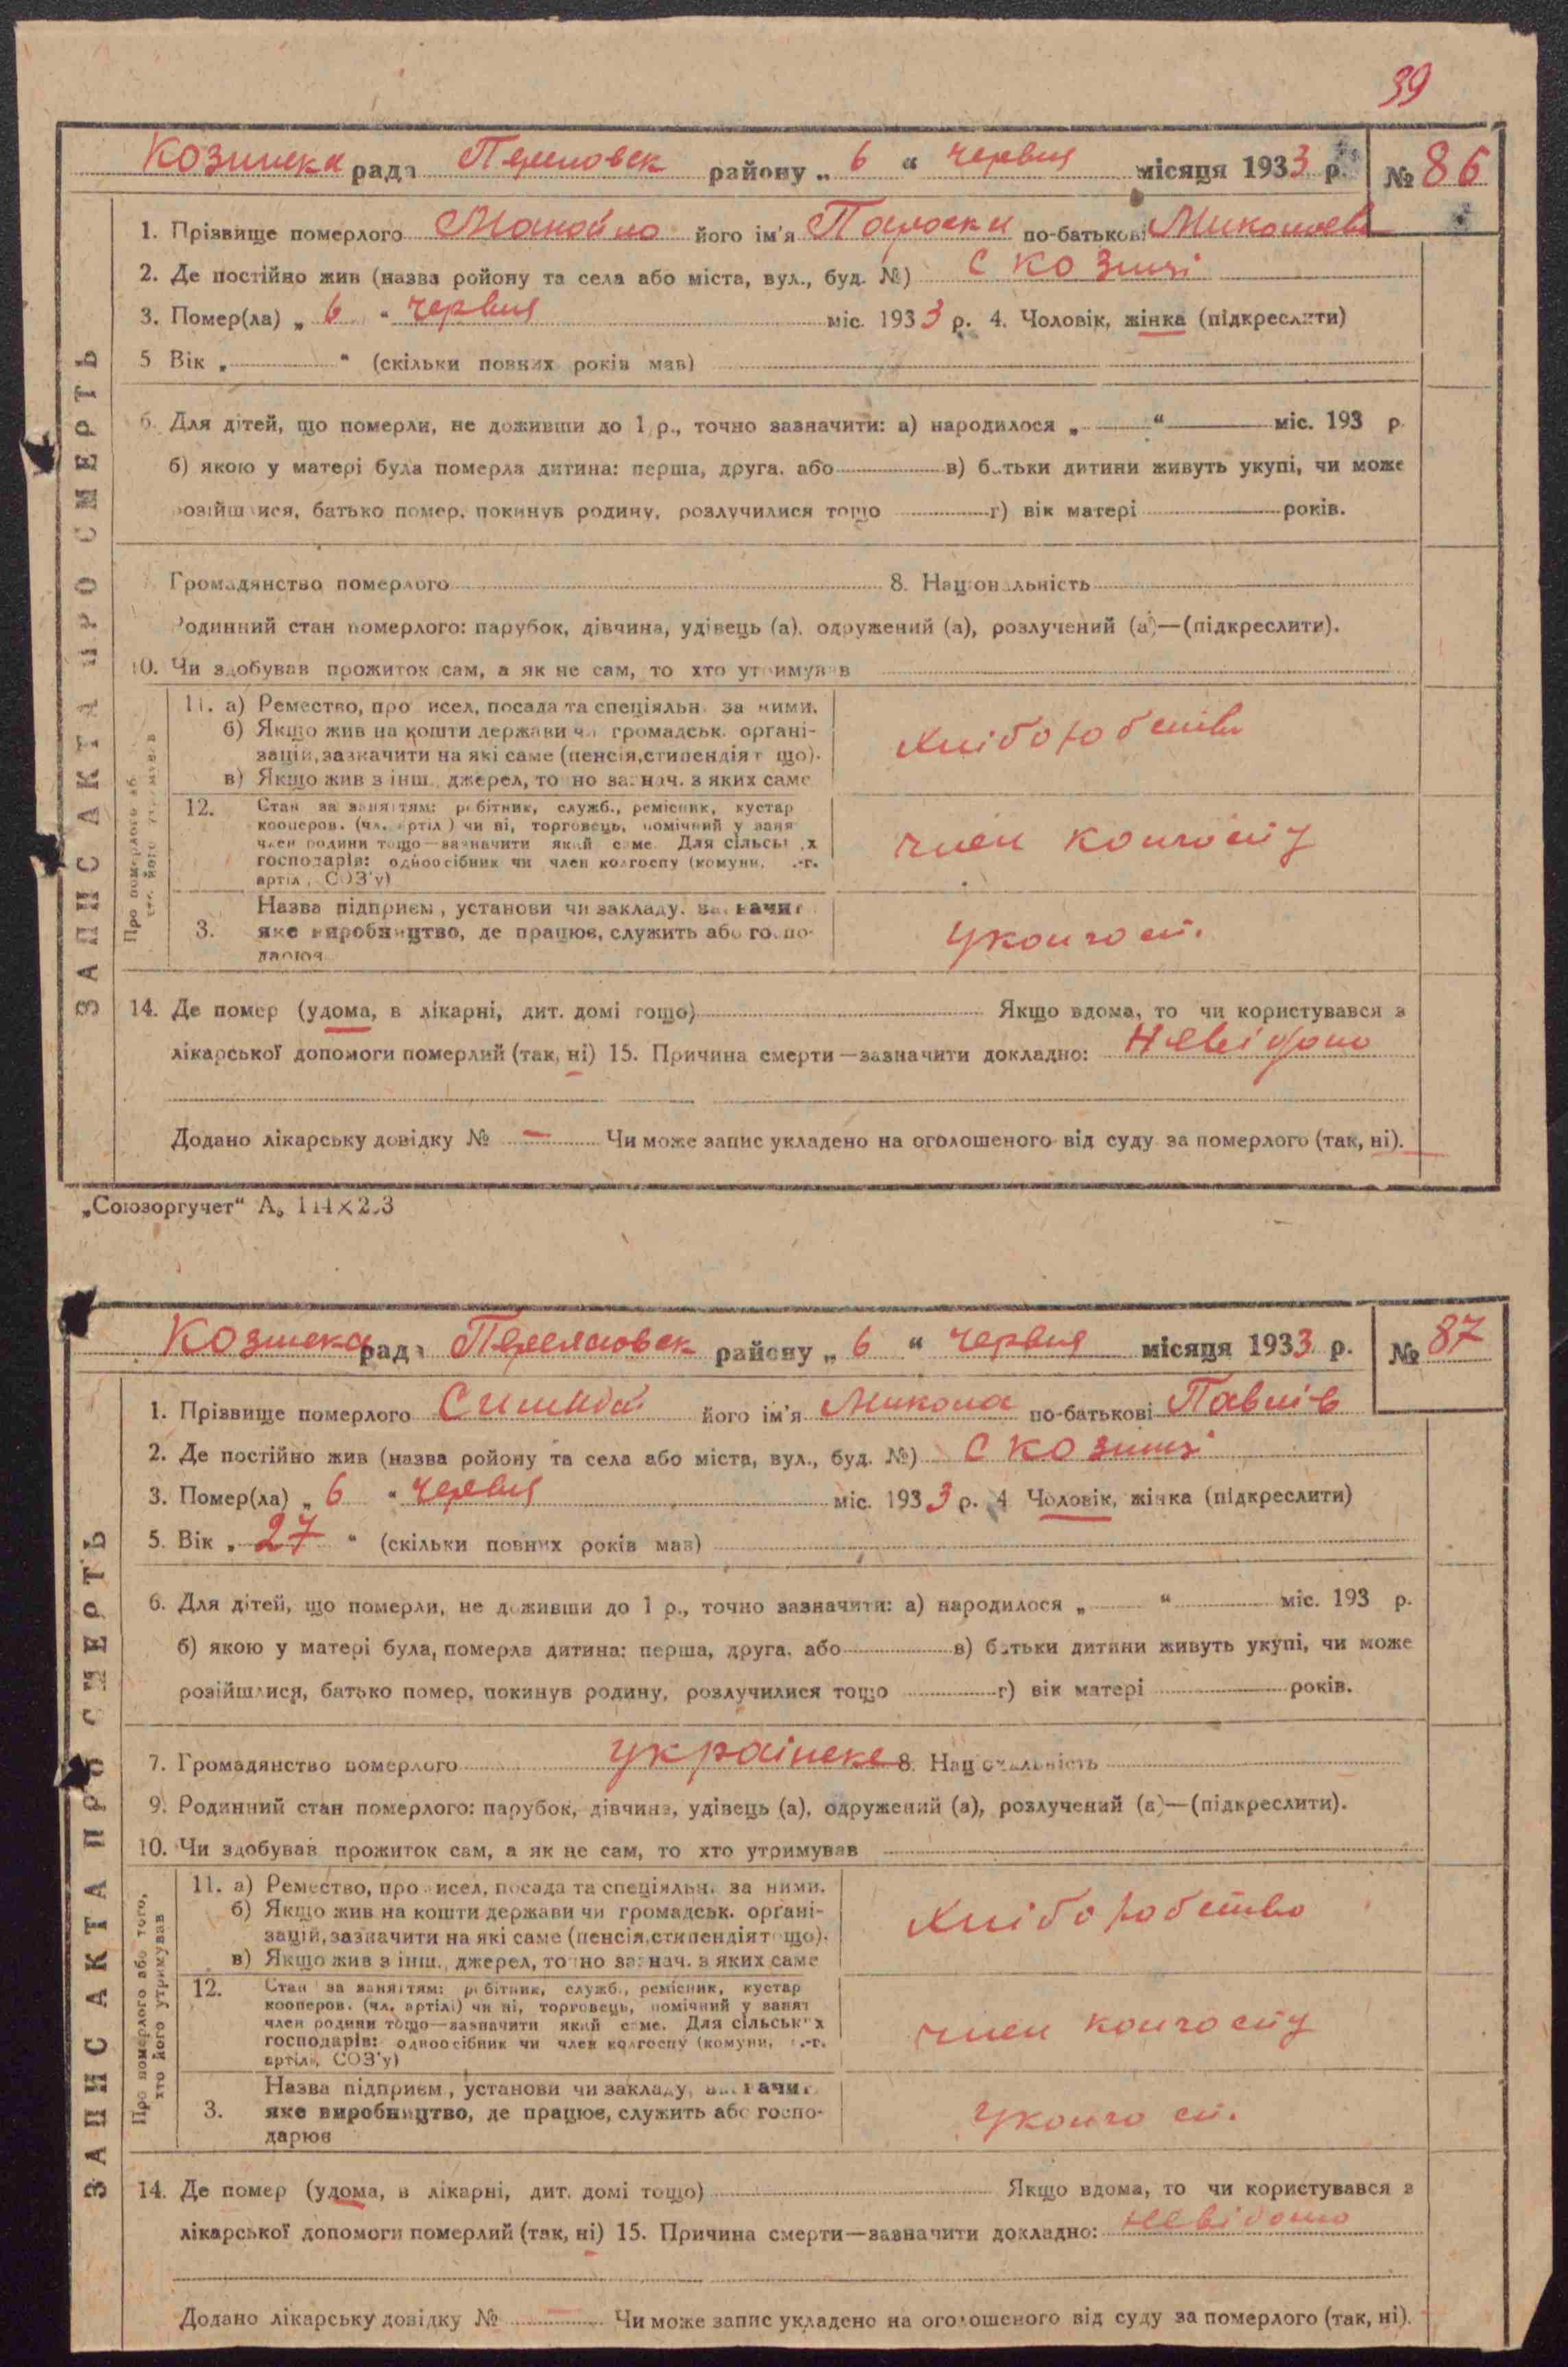 39
Козинска рада Переяловск района „ 6 “ червня місяця 1933 р. № 86
1. Прізвище померлого Манойло його ім'я Параски по-батькові Миколаевн
2. Де постійно жив (назва ройону та села або міста, вул., буд. №) С Козинці
3. Помер(ла) „ 6 “ червня міс. 1933 р. 4. Чоловік, жінка (підкреслити)
5 Вік „ “ (скільки повних років мав)
6. Для дітей, що померли, не доживши до 1 р., точно зазначити: а) народилося „ “ міс. 193 р.
б) якою у матері була померла дитина: перша, друга, або в) батьки дитини живуть укупі, чи може
розійшлися, батько помер, покинув родину, розлучилися тощо г) вік матері років.
Громадянство померлого 8. Національність
Родинний стан померлого: парубок, дівчина, удівець (а), одружений (а), розлучений (а)—(підкреслити).
10. Чи здобував прожиток сам, а як не сам, то хто утримував
ЗАПИС АКТА ПРО СМЕРТЬ
Про померлого або того, хто його утримував
11. а) Ремество, про исел, посада та спеціяльн. за ними.
б) Якщо жив на кошти держави чи громадськ. органі-
зацій, зазначити на які саме (пенсія, стипендія т що).
в) Якщо жив з інш., джерел, то но зазнач. з яких саме
хліборобство
12. Стан за заняттям: робітник, служб., ремісник, кустар
кооперов. (чл. артілі) чи ні, торговець, помічний у занят
член родини тощо—зазначити який саме. Для сільських
господарів: одноосібник чи член колгоспу (комуни, с.-г.
артіл, СОЗ'у)
член колгоспу
3. Назва підприєм, установи чи закладу, зазначит
яке виробництво, де працює, служить або госпо-
дарює
У колгосп.
14. Де помер (удома, в лікарні, дит. домі тощо) Якщо вдома, то чи користувався з
лікарської допомоги померлий (так, ні) 15. Причина смерти—зазначити докладно: Невідомо
Додано лікарську довідку № — Чи може запис укладено на оголошеного від суду за померлого (так, ні).
„Союзоргучет“
Козинска рада Переяловск району „ 6 “ червня місяця 1933 р. № 87
1. Прізвище померлого його ім'я Микола по-батькові Павлів
2. Де постійно жив (назва ройону та села або міста, вул., буд. №) С Козинці
3. Помер(ла) „ 6 “ червня міс. 1933 р. 4 Чоловік, жінка (підкреслити)
5. Вік „ 27 “ (скільки повних років мав)
6. Для дітей, що померли, не доживши до 1 р., точно зазначити: а) народилося „ “ міс. 193 р.
б) якою у матері була, померла дитина: перша, друга, або в) батьки дитини живуть укупі, чи може
розійшлися, батько помер, покинув родину, розлучилися тощо г) вік матері років.
7. Громадянство померлого українске 8. Національність
9. Родинний стан померлого: парубок, дівчина, удівець (а), одружений (а), розлучений (а)—(підкреслити).
10. Чи здобував прожиток сам, а як не сам, то хто утримував
ЗАПИС АКТА ПРО СМЕРТЬ
Про померлого або того, хто його утримував
11. а) Ремество, про исел, посада та спеціяльн. за ними.
б) Якщо жив на кошти держави чи громадськ. органі-
зацій, зазначити на які саме (пенсія, стипендія т що).
в) Якщо жив з інш., джерел, то но зазнач. з яких саме
хліборобство
12. Стан за заняттям: робітник, служб., ремісник, кустар
кооперов. (чл. артілі) чи ні, торговець, помічний у занят
член родини тощо—зазначити який саме. Для сільських
господарів: одноосібник чи член колгоспу (комуни, с.-г.
артілі, СОЗ'у)
член колгоспу
3. Назва підприєм, установи чи закладу, зазначит
яке виробництво, де працює, служить або госпо-
дарює
У колгосп.
14. Де помер (удома, в лікарні, дит. домі тощо) Якщо вдома, то чи користувався з
лікарської допомоги померлий (так, ні) 15. Причина смерти—зазначити докладно: невідомо
Додано лікарську довідку № — Чи може запис укладено на оголошеного від суду за померлого (так, ні).